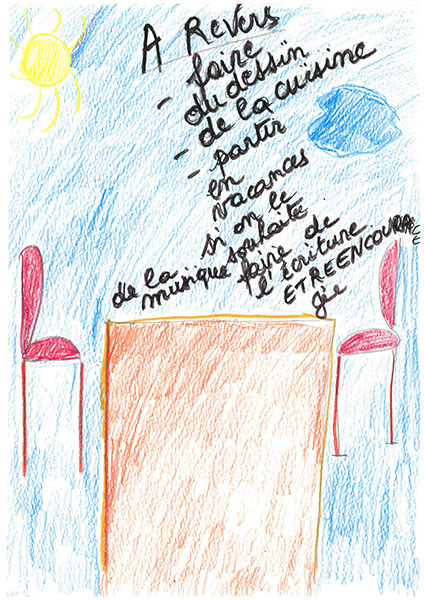 A Revers
- faire
du dessin
- de la cuisine
- partir
en
vacances
si on le
souhaite.
de la
musique
faire de
l'écriture
ETREENCOURAGE
gée